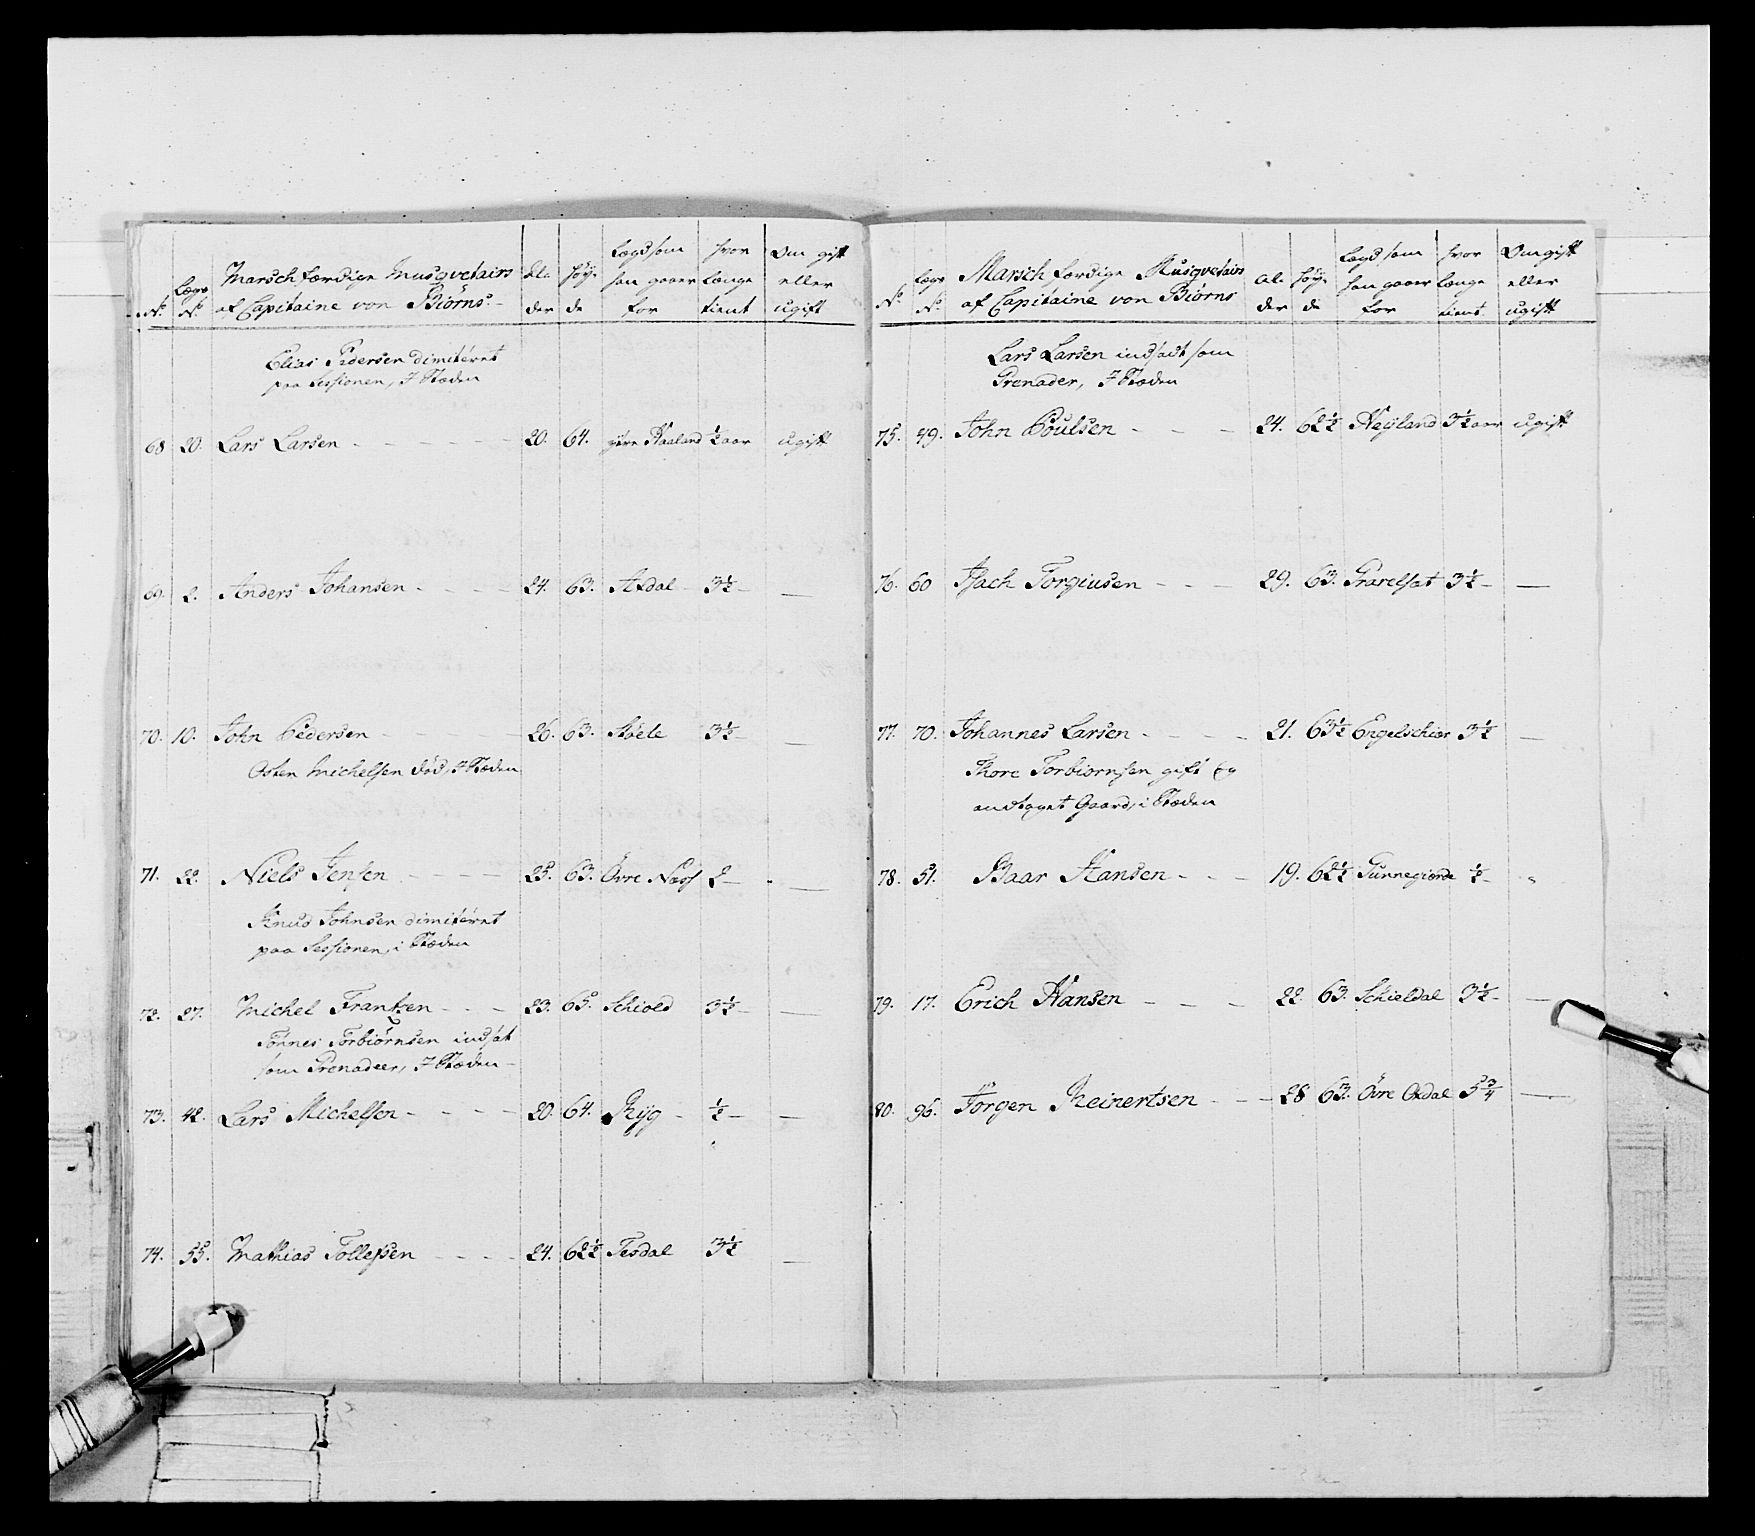 No. Lægs No. Marsch færdige Musqvetairs af Capitaine von Biörns Al- der Höy- de Lægd som han gaaer for hvor længe tient Om gift eller ugift
Elias Pedersen dimiteret
paa Sessionen, I Stæden
68 20. Lars Larsen 20. 64. Haaland ½ aar ugift
69. 2. Anders Johansen 24. 63. Axdal 3½ —
70. 10. John Pedersen 26. 63. Stöele 3½ —
Osten Michelsen död, I Stæden
71. 22. Niels Jensen 25. 63. Övre Næss 2 —
Knud Johnsen dimiteret
paa Sessionen, i Stæden
72. 27. Michel Frantzen 23. 65. Schiold 3½ —
Tönnes Torbiörnsen indsat
som Grenadeer, I Stæden
73. 42. Lars Michelsen 20. 64. Ryg ½ —
74. 55. Mathias Tollefsen 24. 62½ Tesdal 3½ —
No. Lægs No. Marsch færdige Musqvetairs af Capitaine von Biörns Al- der Höy- de Lægd som han gaaer for hvor længe tient Om gift eller ugift
Lars Larsen indsadt som
Grenader, I Stæden
75. 49. John Poulsen 24. 62½ Heyland 3½ aar ugift
76. 60 Isach Torgiusen 29. 63. 3½ —
77. 70. Johannes Larsen 21. 63½ Engelschiær 3½ —
Thore Torbiörnsen gift og
andtaget Gaard, i Stæden
78. 51. Baar Hansen 19. 62½ Tunnegiorde ½
79. 17. Erich Hansen 22. 63. Schieldal 3½ —
80. 96. Jörgen Reinertsen 28 63. Övre Oxdal 5¾ —